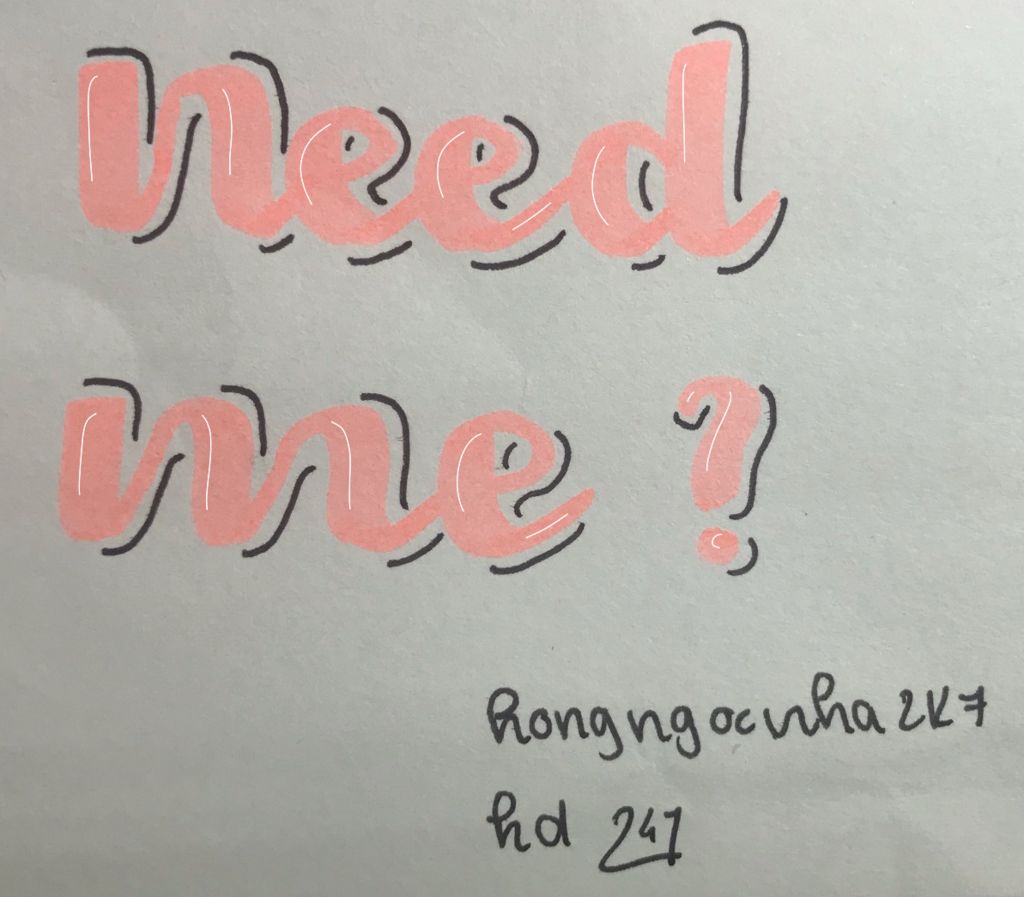 need
me ?
hongngocnha2k7
hd 247